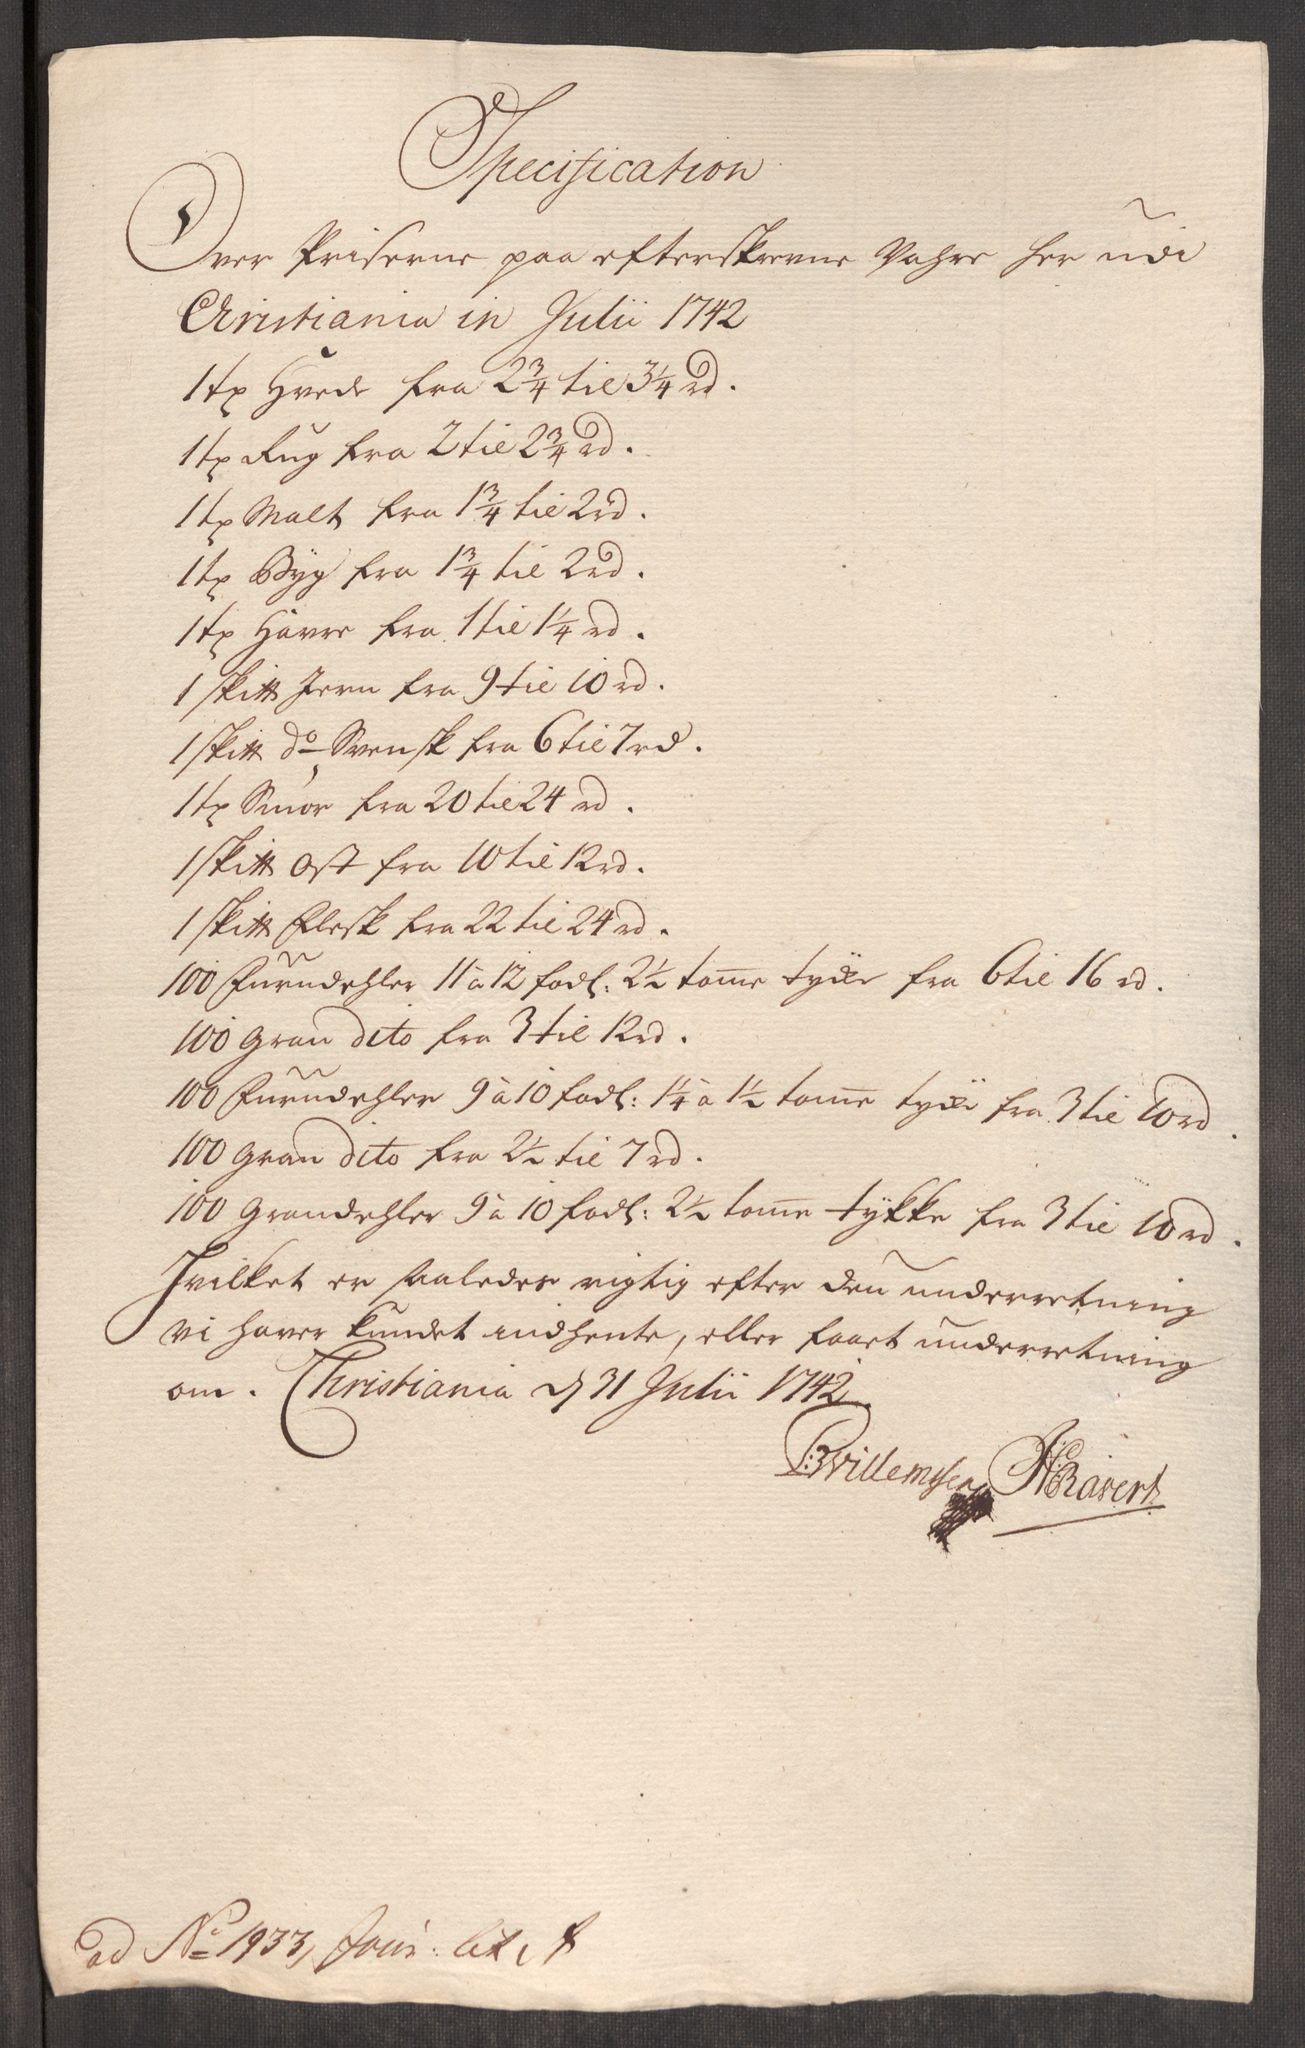 Specification
Over Priserne paa efterskrevne Vahre her udi
Christiania in Julii 1742
1 tø Hvede fra 2¾ til 3¼ rd.
1 tø Rug fra 2 til 2¾ rd.
1 tø Malt fra 1¾ til 2 rd.
1 tø Byg fra 1¾ til 2 rd.
1 tø Havre fra 1 til 1¼ rd.
1 skitt Jern fra 9 til 10 rd.
1 skitt do Svensk fra 6 til 7 rd.
1 tø Smør fra 20 til 24 rd.
1 skitt Ost fra 10 til 12 rd.
1 skitt Flesk fra 22 til 24 rd.
100 Furudehler 11 à 12 fods: 2½ tomme tycke fra 6 til 16 rd.
100 Gran dito fra 3 til 12 rd.
100 Furudehler 9 à 10 fods: 1¼ à 1½ tomme tycke fra 3 til 10 rd.
100 Gran dito fra 2½ til 7 rd.
100 Grandehler 9 à 10 fods: 2½ tomme tykke fra 3 til 10 rd.
Hvilket er saaledes rigtig efter den underretning
vi haver kundet indhente, eller faaet underretning
om. Christiania d 31 Julii 1742.
P: Willemsen HCRavert
ad No 1933, Jour: lit. A